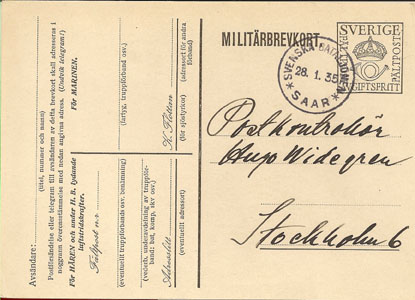 MILITÄRBREVKORT
SVERIGE
FÄLTPOST
AVGIFTSFRITT
SVENSKA BATALJONEN
28.1.35
SAAR
Postkontrollör
Hugo Widegren
Stockholm 6
Avsändare:
(titel, nummer och namn)
Postförsändelse eller telegram till avsändaren av detta brevkort skall adresseras i
noggrann överensstämmelse med nedan angivna adress. (Undvik telegram!)
För HÄREN och under H. B. lydande
luftstridskrafter.
För MARINEN.
Fältpost n:r
(eventuellt truppförbands osv. benämning)
(fartyg, truppförband osv.)
(vederb. underavdelning av truppför-
band: bat, komp, skv osv.)
Adresslitt
K. Flottan
(för sjöstyrkor)
(eventuellt adressort)
(adressort för andra
förband)